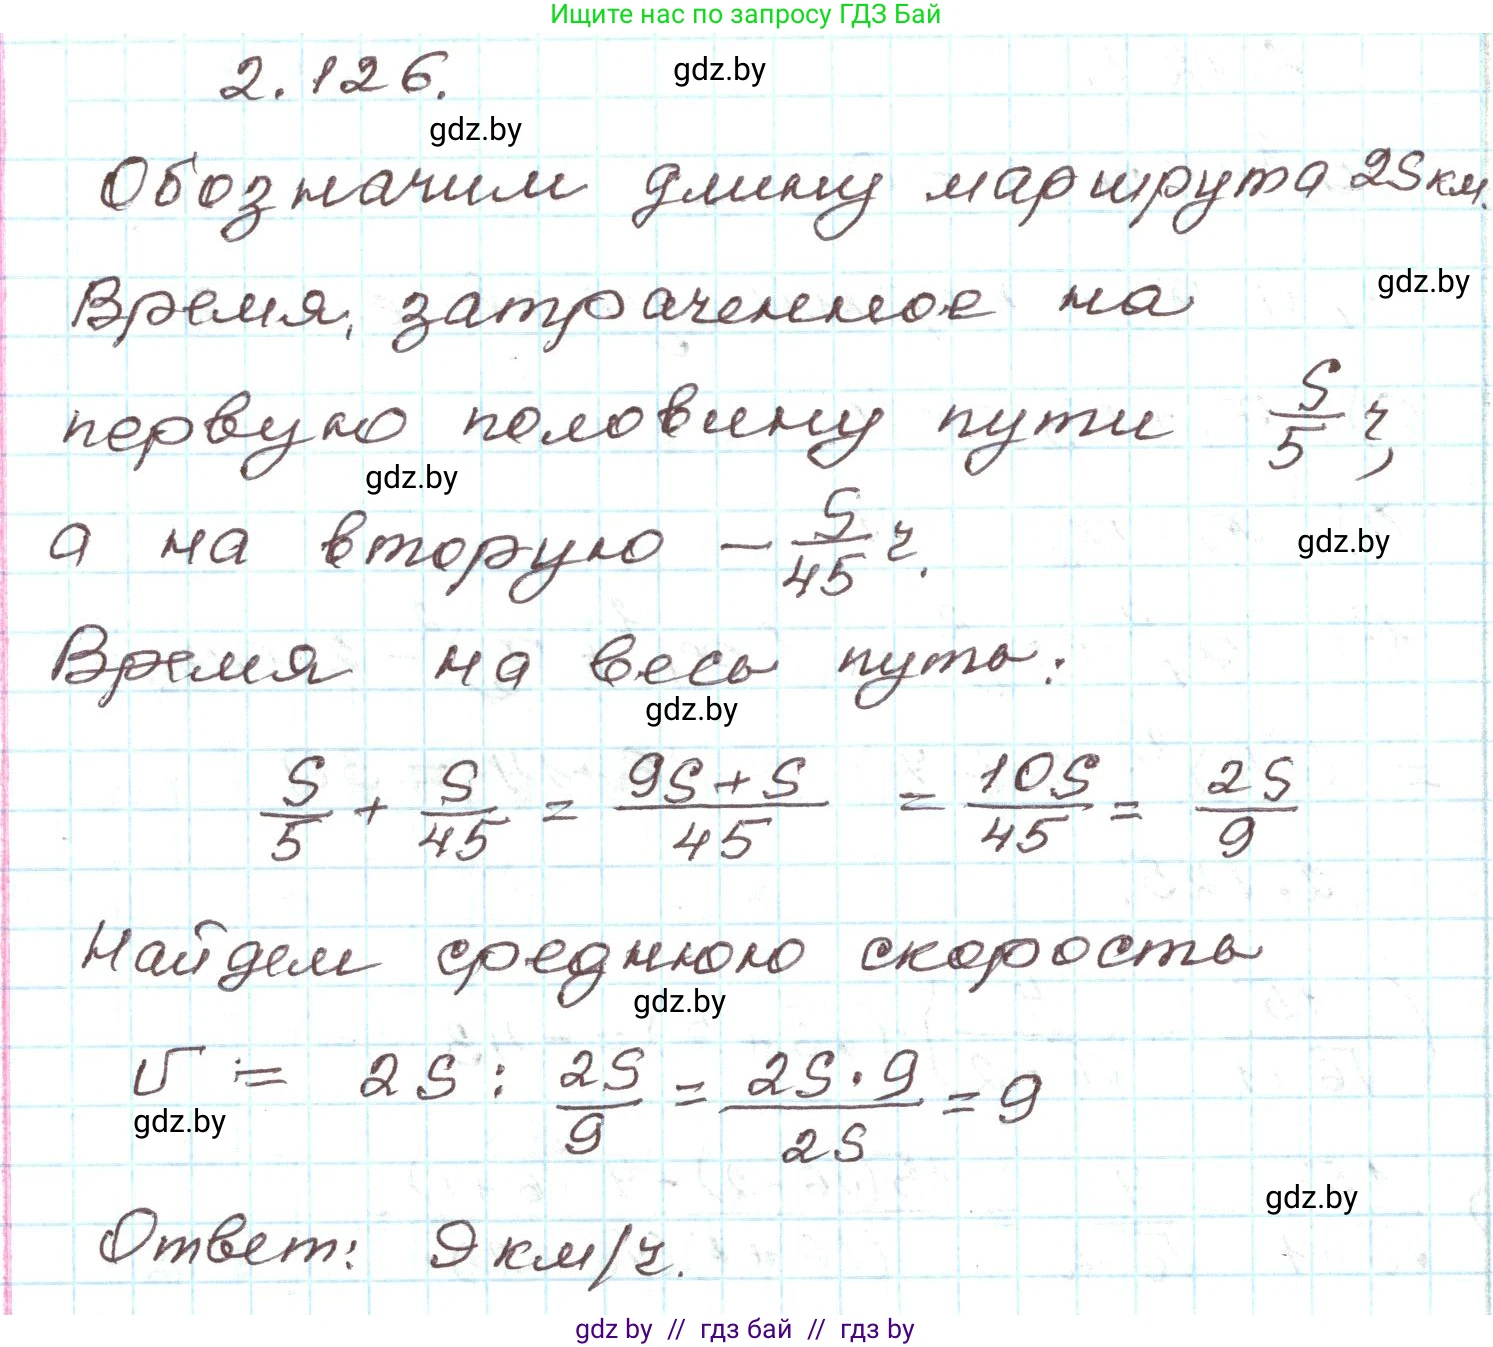 Ищите нас по запросу ГДЗ Бай
2.126.
gdz.by
gdz.by
Обозначим длину маршрута 2S км.
gdz.by
Время, затраченное на
первую половину пути S/5 ч,
gdz.by
а на вторую – S/45 ч.
gdz.by
Время на весь путь:
gdz.by
S/5 + S/45 = 9S+S/45 = 10S/45 = 2S/9
Найдем среднюю скорость
gdz.by
V = 2S : 2S/9 = 2S·9/2S = 9
gdz.by
gdz.by
Ответ: 9 км/ч.
gdz by // гдз бай // гдз by